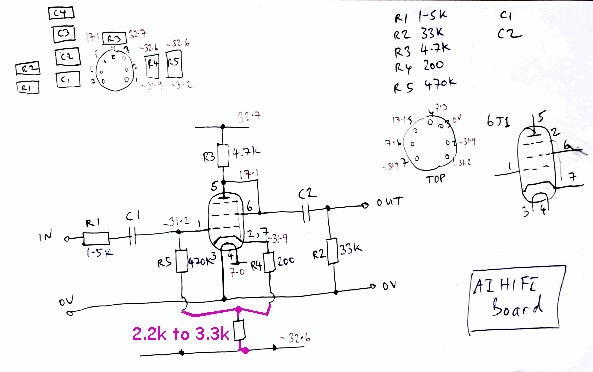 C4
C3
C2
C1
R2
R1
17.1
R3
32.7
-32.6
-32.6
R4
R5
-31.9
-31.2
R1 1-5k
R2 33k
R3 4.7k
R4 200
R5 470k
C1
C2
17.1
7.3
0V
-31.9
-31.2
-31.9
TOP
6J1
5
2
6
1
7
3 4
32.7
R3
4.7k
17.1
5
6
C2
OUT
IN
R1
1-5k
C1
-31.2
1
2,7
-31.9
3
4
7.0
R5
470K
R4
200
R2
33K
0V
0V
2.2k to 3.3k
-32.6
AIHIFI
Board